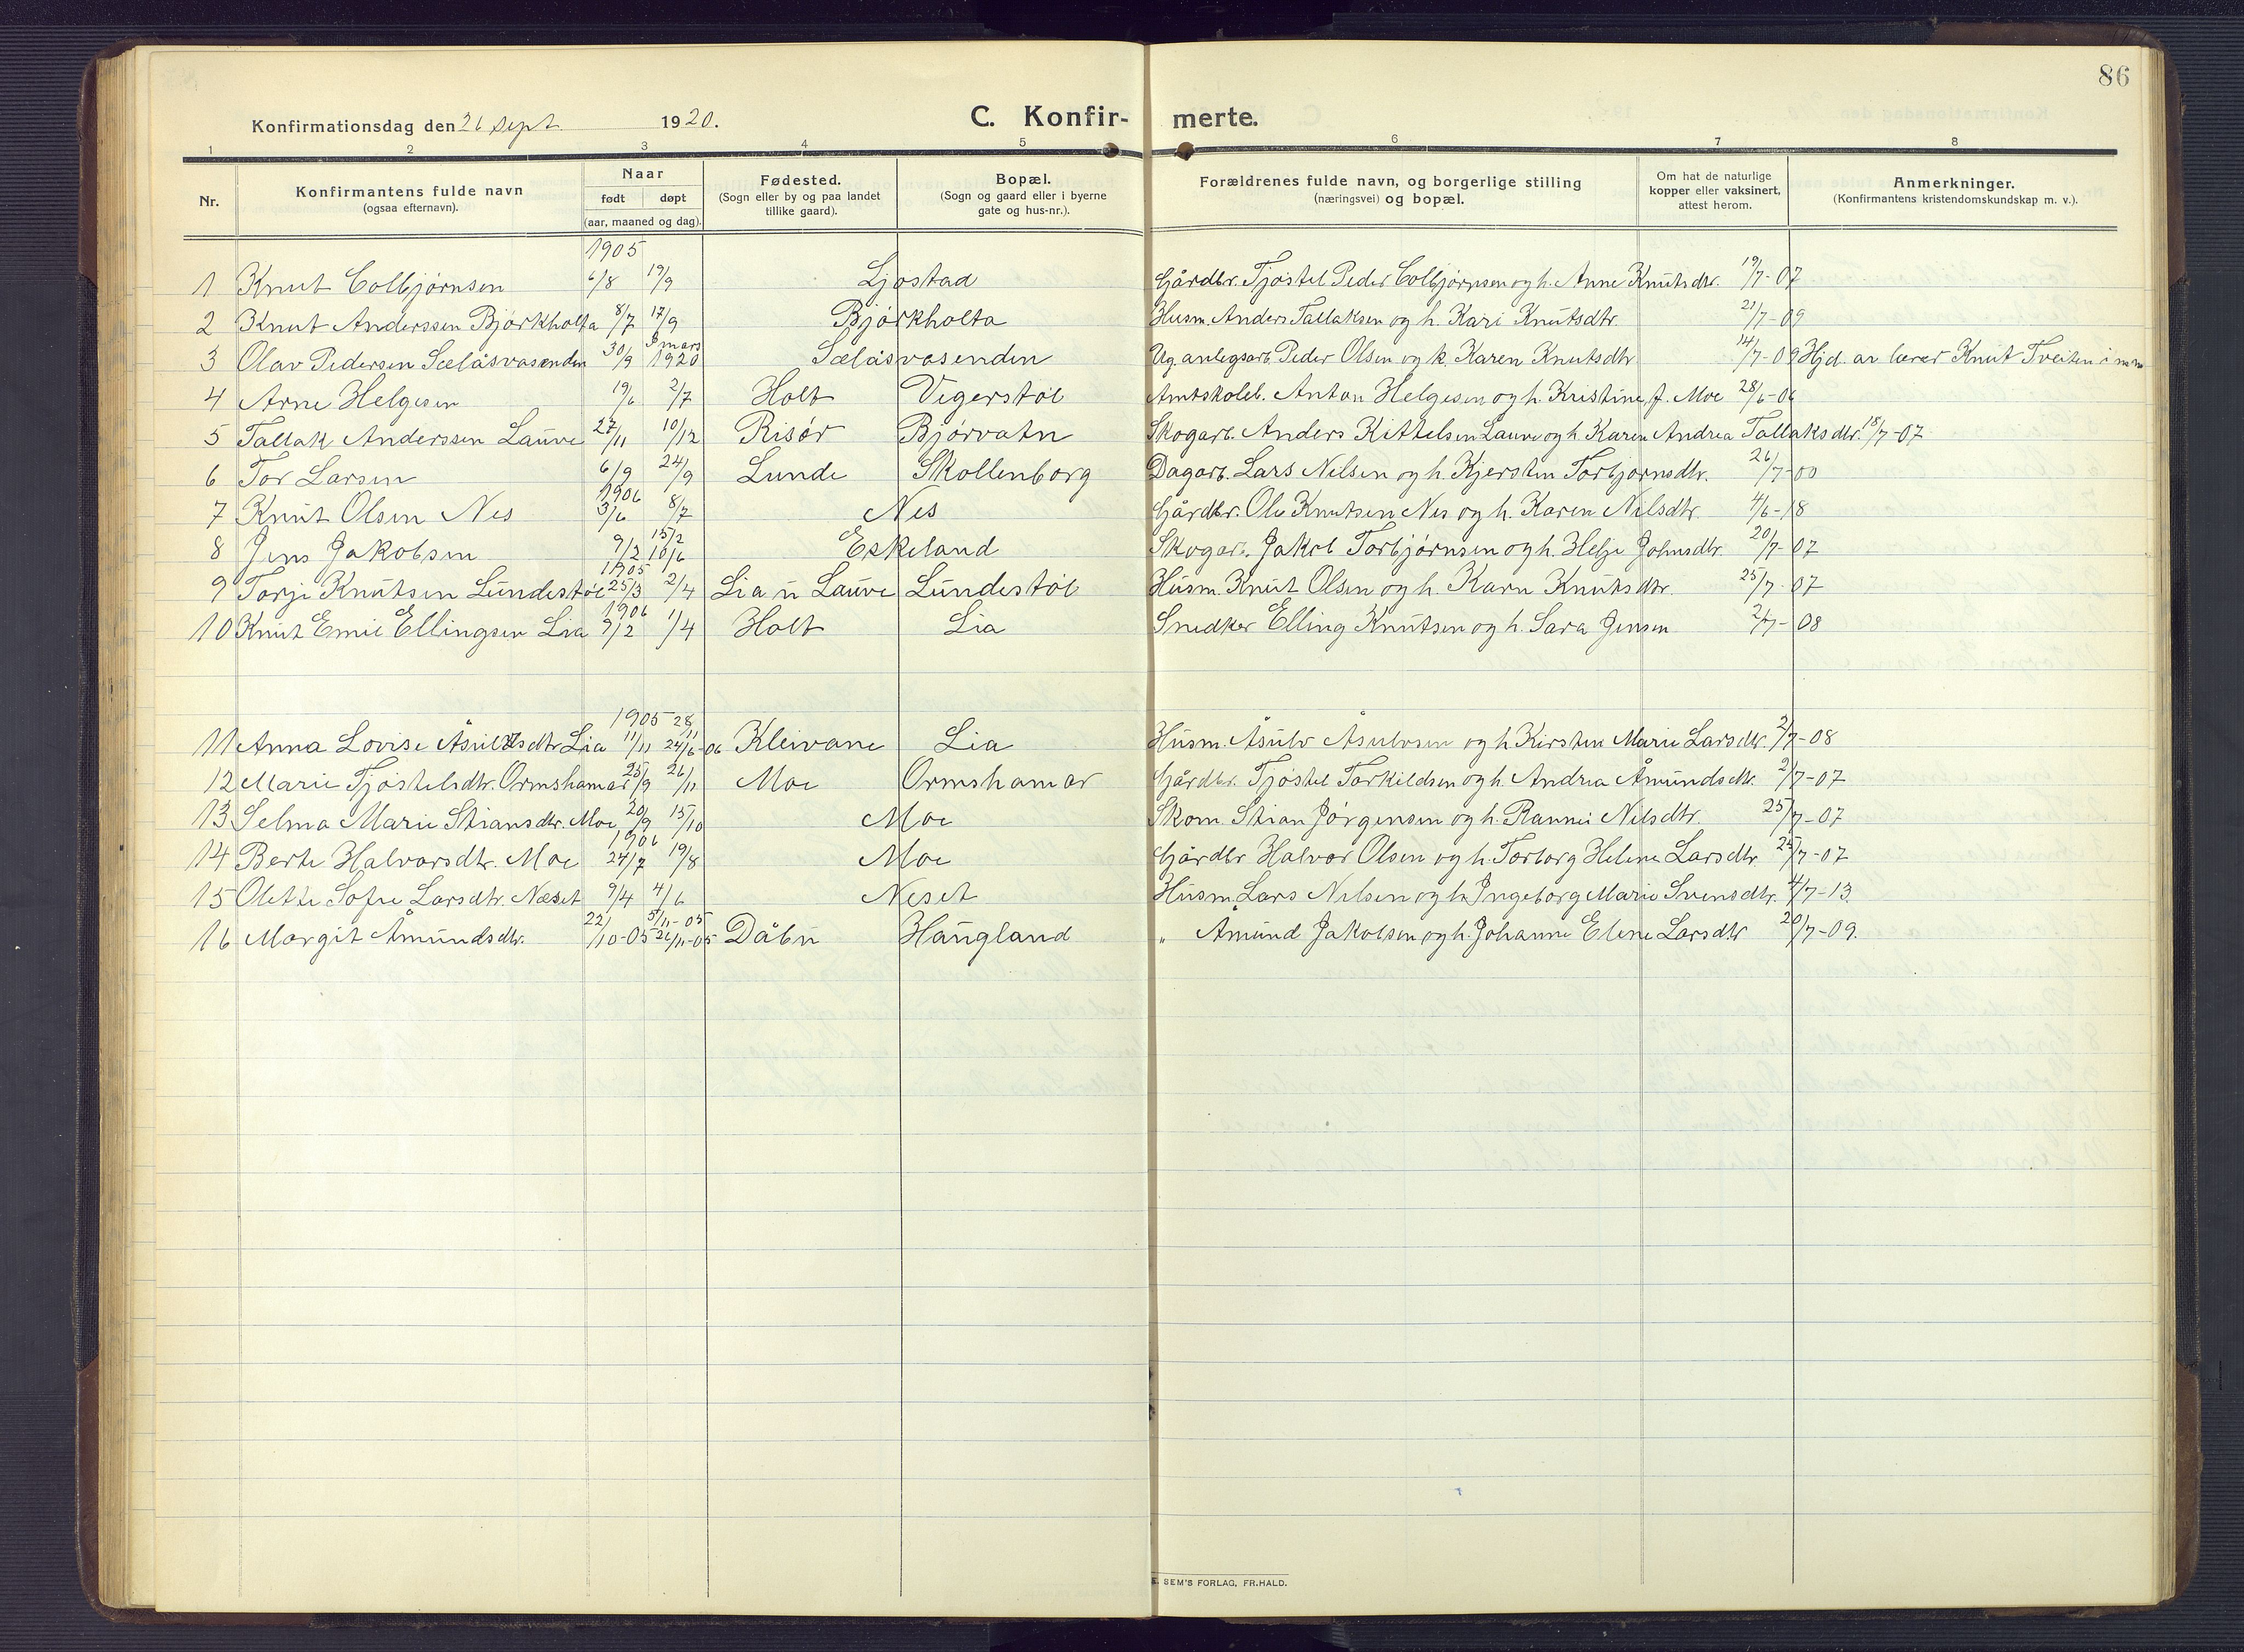 86
Konfirmationsdag den 26 sept. 1920.
C. Konfir- merte.
1 2 3 4 5 6 7 8
Nr.
Konfirmantens fulde navn
(ogsaa efternavn).
Naar
født døpt
(aar, maaned og dag).
Fødested.
(Sogn eller by og paa landet
tillike gaard).
Bopæl.
(Sogn og gaard eller i byerne
gate og hus-nr.).
Forældrenes fulde navn, og borgerlige stilling
(næringsvei) og bopæl.
Om hat de naturlige
kopper eller vaksinert,
attest herom.
Anmerkninger.
(Konfirmantens kristendomskundskap m. v.).
1905
1 Knut Colbjørnsen 6/8 19/9 Ljostad Gårdbr. Tjøstel Peder Colbjørnsen og h. Anne Knutsdtr. 19/7-07
2 Knut Anderssen Bjørkholta 8/7 17/9 Bjørkholta Husm. Anders Tallaksen og h. Kari Knutsdtr. 21/7-09
3 Olav Pedersen Sælåsvasenden 30/9 3 mars 1920 Sælåsvasenden Ug. anlegsarb. Peder Olsen og k. Karen Knutsdtr 14/7-09 Hjd. av lærer Knut Tveiten
4 Arne Helgesen 19/6 2/7 Holt Vegerstøl Amtskoleb. Anton Helgesen og h. Kristine J. Moe 28/6-06
5 Tallak Anderssen Lauve 27/11 10/12 Risør Bjørvatn Skogarb. Anders Kittelsen Lauve og h. Karen Andrea Tallaksdtr. 18/7-07
6 Tor Larsen 6/9 24/9 Lunde Skollenborg Dagarb. Lars Nilsen og h. Kjersten Torbjørnsdtr. 26/7-00
1906
7 Knut Olsen Nes 3/6 8/7 Nes Gårdbr. Ole Knutsen Nes og h. Karen Nilsdtr. 4/6-18
15/2
8 Jens Jakobsen 9/2 10/6 Eskeland Skogarb. Jakob Torbjørnsen og h. Helje Johnsdtr. 20/7-07
1905
9 Torje Knutsen Lundestøl 25/3 2/4 Lia u Lauve Lundestøl Husm. Knut Olsen og h. Karen Knutsdtr. 25/7-07
1906
10 Knut Emil Ellingsen Lia 9/2 1/4 Holt Lia Snedker Elling Knutsen og h. Sara Jensen 2/7-08
1905 28/11
11 Anna Lovise Åsulvsdtr Lia 11/11 24/6-06 Kleivane Lia Husm. Åsulv Åsulvsen og h Kirsten Marie Larsdtr. 2/7-08
12 Marie Tjøstelsdtr. Ormshamar 25/9 26/11 Moe Ormshamar Gårdbr. Tjøstel Torkildsen og h. Andrea Åmundsdtr. 2/7-07
13 Selma Marie Stiansdtr. Moe 20/9 15/10 Moe Skom. Stian Jørgensen og h. Rannei Nilsdtr. 25/7-07
1906
14 Berte Halvorsdtr. Moe 24/7 19/8 Moe Gårdbr Halvor Olsen og h. Torborg Helene Larsdtr 25/7-07
15 Olette Sofie Larsdtr. Næset 9/4 4/6 Neset Husm. Lars Nilsen og h Ingeborg Marie Svensdtr. 4/7-13.
5/11-05
16 Margit Åmundsdtr. 22/10-05 26/11-05 Dåbu Haugland " Åmund Jakobsen og h. Johanne Elene Larsdtr 20/7-09.
SEM'S FORLAG, FR.HALD.